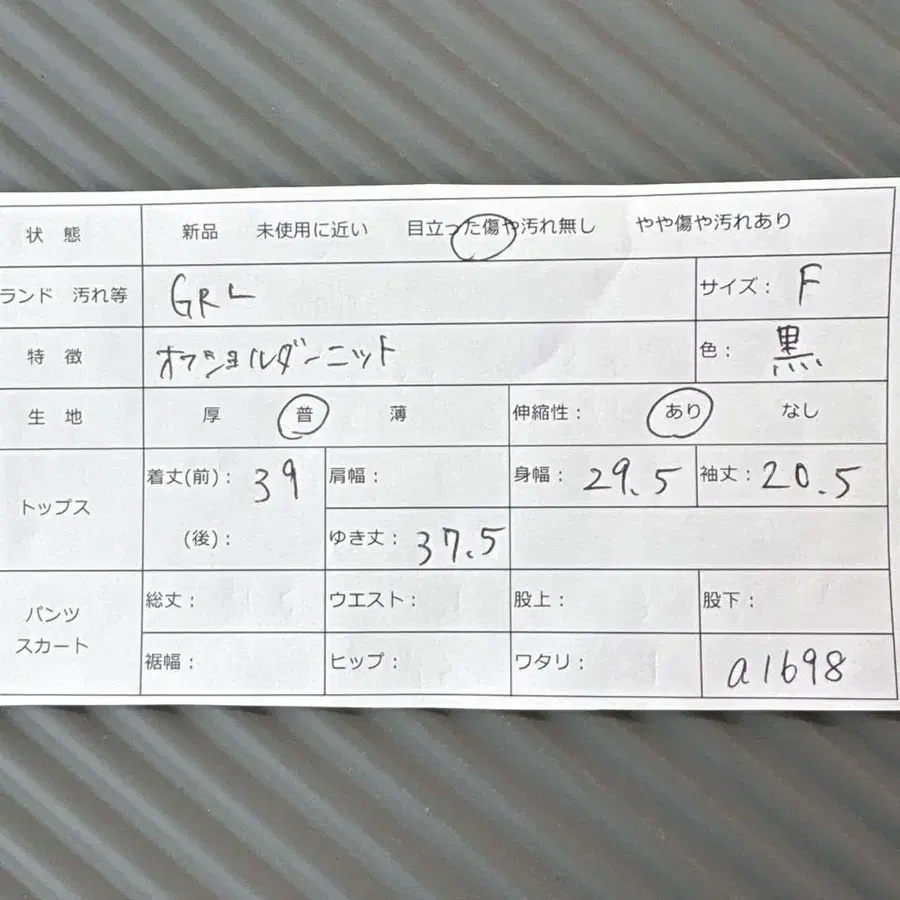 状 態 新品 未使用に近い 目立った傷や汚れ無し やや傷や汚れあり
ランド 汚れ等 GRL サイズ: F
特 徴 オフショルダーニット 色: 黒
生 地 厚 普 薄 伸縮性: あり なし
トップス 着丈(前): 39 肩幅: 身幅: 29.5 袖丈: 20.5
(後): ゆき丈: 37.5
パンツ スカート 総丈: ウエスト: 股上: 股下:
裾幅: ヒップ: ワタリ: a1698